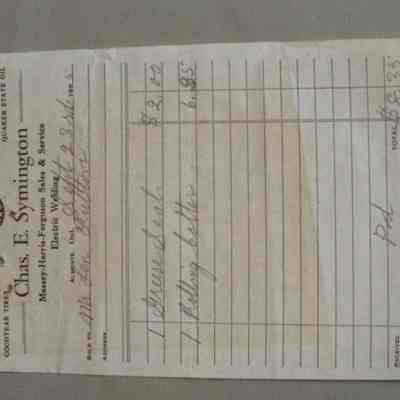 GOODYEAR TIRES QUAKER STATE OIL
Chas. E. Symington
Massey-Harris-Ferguson Sales & Service
Electric Welding
Almonte, Ont. Sept 23rd 195
SOLD TO Mr Len
ADDRESS
1 Grease Seal $2.00
1 Rolling Cutter 6.85
Pd
RECEIVED TOTAL